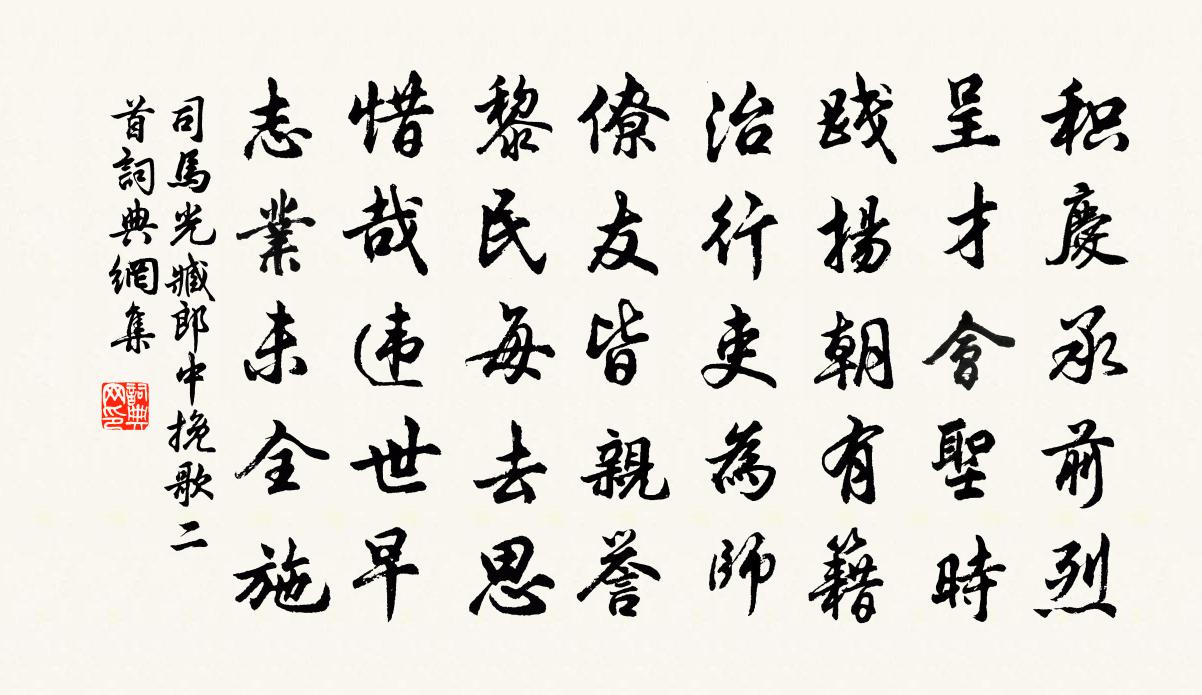 积慶承前烈
呈才會聖時
践揚朝有籍
治行吏為師
僚友皆親誉
黎民每去思
惜哉违世早
志業未全施
司馬光臧郎中挽歌二
首詞典網集
詞典
网印